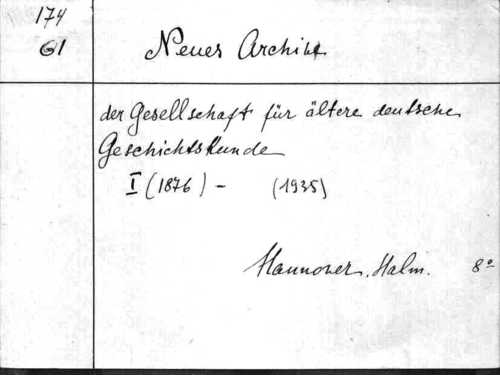 174
61
Neues Archiv
der Gesellschaft für ältere deutsche
Geschichtskunde
I (1876) - (1935)
Hannover, Hahn. 8º